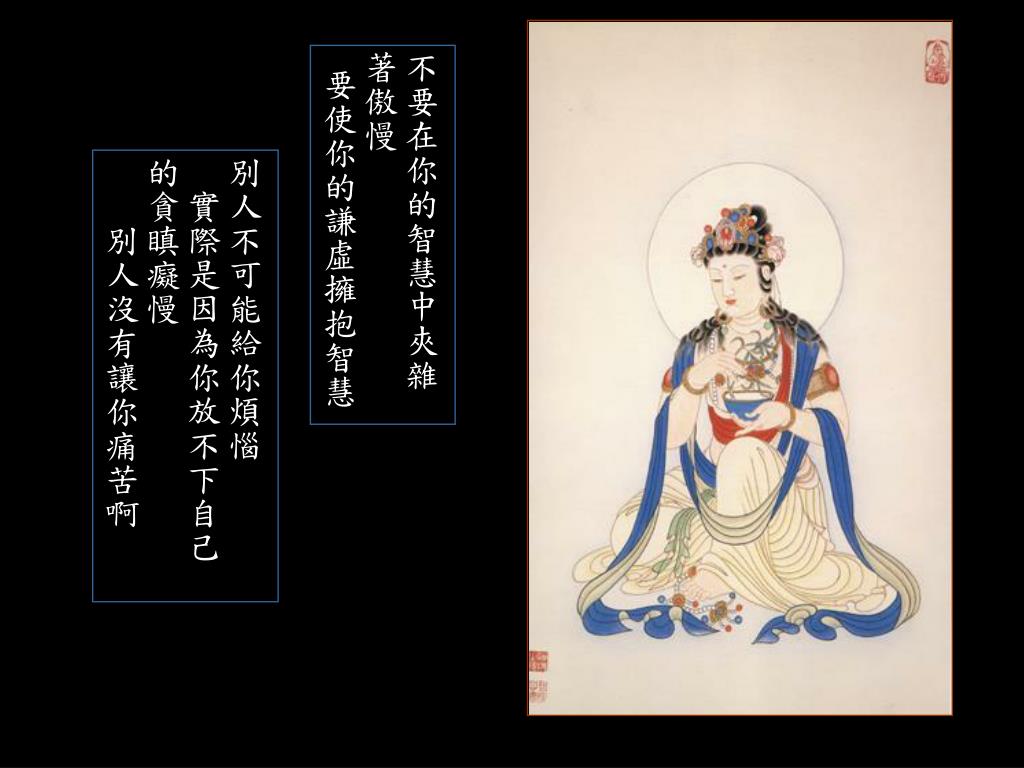 不要在你的智慧中夾雜
著傲慢
要使你的謙虛擁抱智慧
別人不可能給你煩惱
實際是因為你放不下自己
的貪瞋癡慢
別人沒有讓你痛苦啊